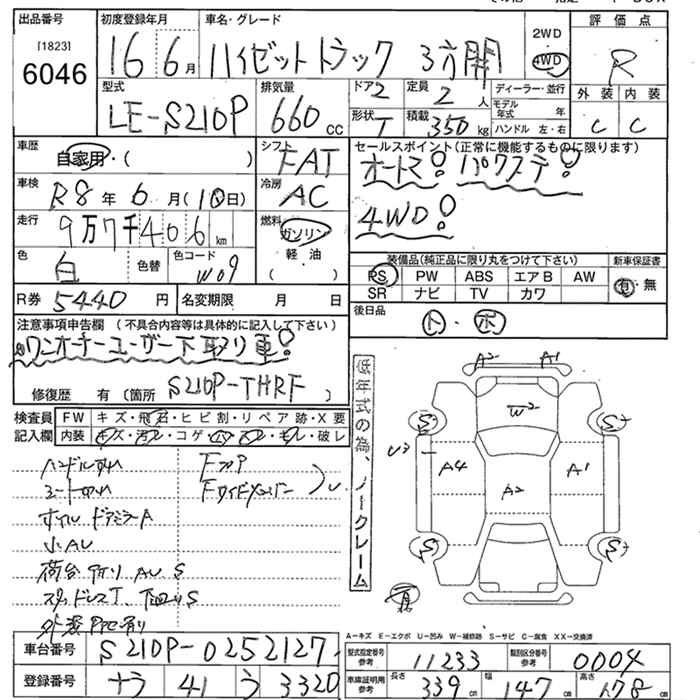 出品番号 初度登録年月 車名・グレード 評価点
[1823]
6046
16年6月 ハイゼットトラック 3方開 2WD 4WD R
型式 排気量 ドア 定員 ディーラー・並行 外装 内装
LE-S210P 660cc 2 2人 モデル年式 年
形状 T 積載 350kg ハンドル 左・右 C C
車歴 シフト セールスポイント(正常に機能するものに限ります)
自家用・( ) FAT オートマ! パワステ!
車検 R8年6月(10日) 冷房 AC 4WD!
走行 9万7千406km 燃料 ガソリン
軽油
( )
色 白 色替 色コード W09
装備品(純正品に限り丸をつけて下さい) 新車保証書
PS PW ABS エアB AW 有・無
SR ナビ TV カワ
R券 5440円 名変期限 月 日 後日品
ト・ホ
注意事項申告欄 (不具合内容等は具体的に記入して下さい)
ワンオーナーユーザー下取り車!
修復歴 有(箇所 S210P-THRF )
検査員 FW キズ・飛石・ヒビ割・リペア跡・X要
記入欄 内装 キズ・汚レ・コゲ
・破レ
低年式の為、ノークレーム
FフロアP
ホイル ドアミラーA
小AU
荷台 AUS
A2 A1
W2
S S
U3 A4 A2 A1
S S
有
A-キズ E-エクボ U-凹み W-補修跡 S-サビ C-腐食 XX-交換済
車台番号 S210P-0252127
型式指定番号 参考 11233 類別区分番号 参考 0004
登録番号 なラ 41 う 3320
車庫証明用 参考 長さ 339cm 幅 147cm 高さ 178cm